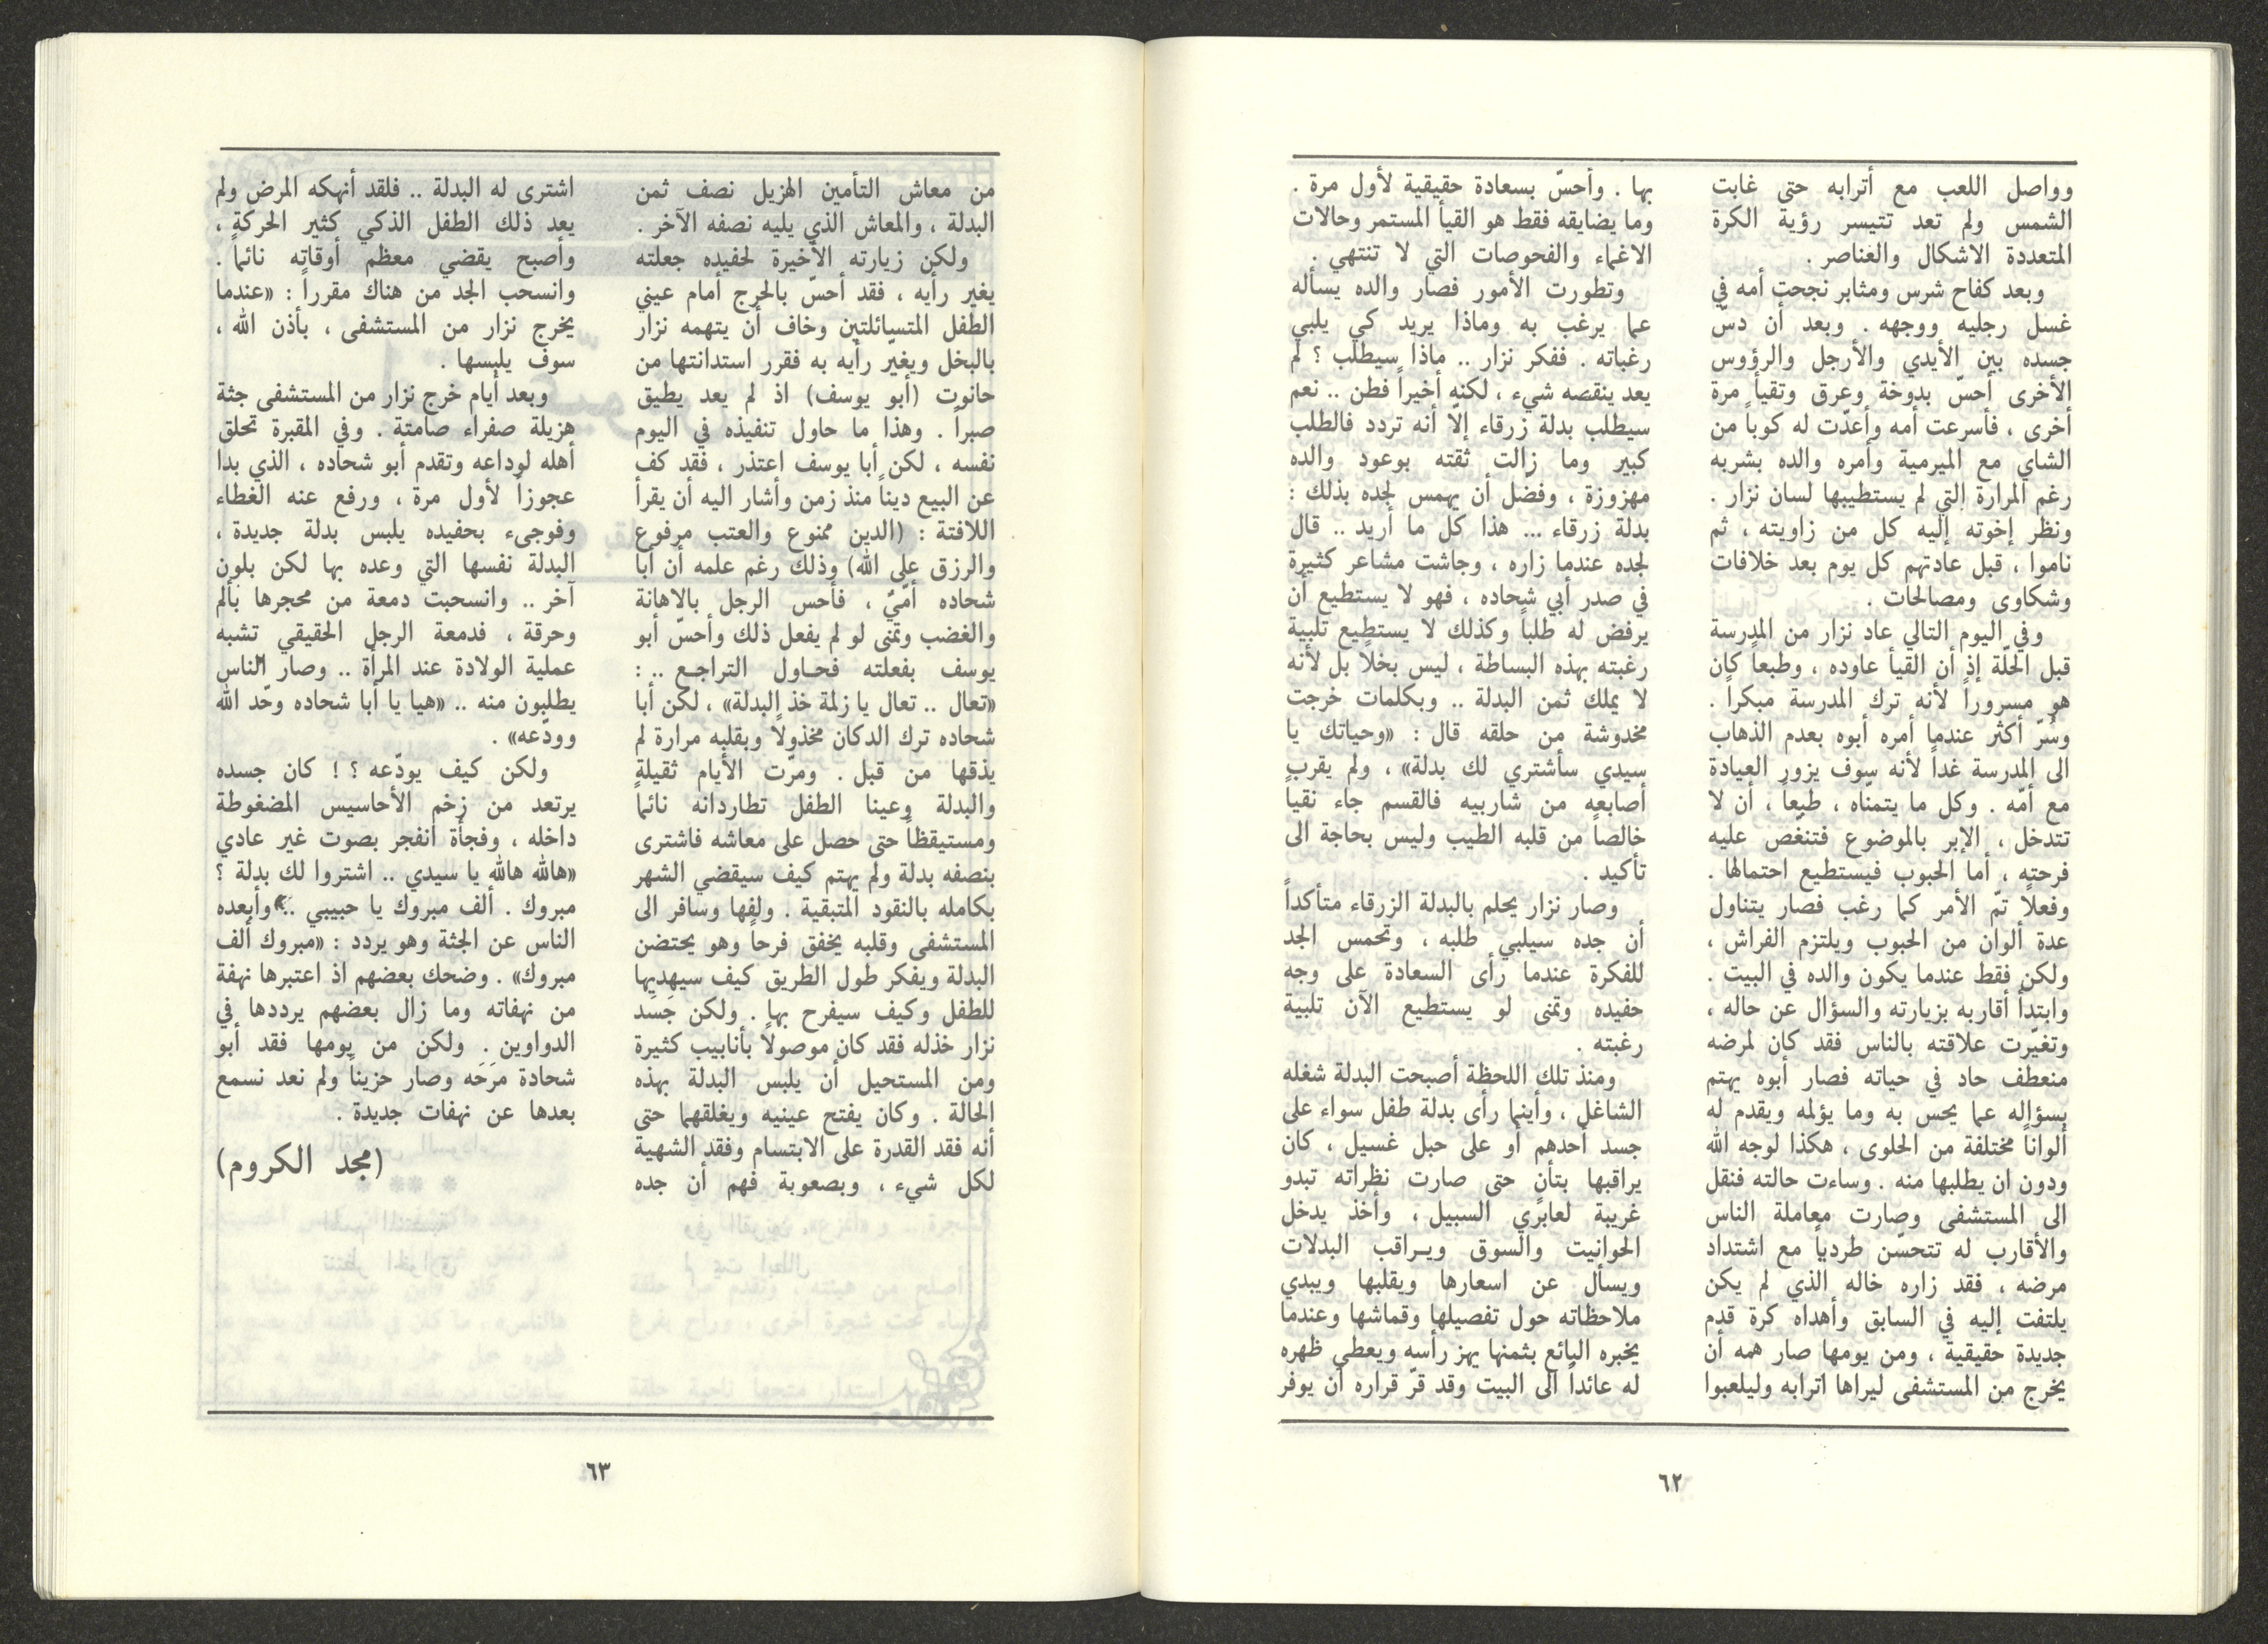 وواصل اللعب مع أترابه حتى غابت
الشمس ولم تعد تتيسر رؤية الكرة
المتعددة الاشكال والعناصر .
وبعد كفاح شرس ومثابر نجحت أمه في
غسل رجليه ووجهه . وبعد أن دسّ
جسده بين الأيدي والأرجل والرؤوس
الأخرى أحسّ بدوخة وعرق وتقيأ مرة
أخرى ، فأسرعت أمه وأعدّت له كوباً من
الشاي مع الميرمية وأمره والده بشربه
رغم المرارة التي لم يستطيبها لسان نزار .
ونظر إخوته إليه كل من زاويته ، ثم
ناموا ، قبل عادتهم كل يوم بعد خلافات
وشكاوى ومصالحات .
وفي اليوم التالي عاد نزار من المدرسة
قبل الحلّة إذ أن القيأ عاوده ، وطبعاً كان
هو مسروراً لأنه ترك المدرسة مبكراً .
وسُرّ أكثر عندما أمره أبوه بعدم الذهاب
الى المدرسة غداً لأنه سوف يزور العيادة
مع أمّه . وكل ما يتمنّاه ، طبعاً ، أن لا
تتدخل ، الإبر بالموضوع فتنغّص عليه
فرحته ، أما الحبوب فيستطيع احتمالها .
وفعلاً تمّ الأمر كما رغب فصار يتناول
عدة ألوان من الحبوب ويلتزم الفراش ،
ولكن فقط عندما يكون والده في البيت .
وابتدأ أقاربه بزيارته والسؤال عن حاله ،
وتغيّرت علاقته بالناس فقد كان لمرضه
منعطف حاد في حياته فصار أبوه يهتم
بسؤاله عما يحس به وما يؤلمه ويقدم له
ألواناً مختلفة من الحلوى ، هكذا لوجه الله
ودون ان يطلبها منه . وساءت حالته فنقل
الى المستشفى وصارت معاملة الناس
والأقارب له تتحسّن طردياً مع اشتداد
مرضه ، فقد زاره خاله الذي لم يكن
يلتفت إليه في السابق وأهداه كرة قدم
جديدة حقيقية ، ومن يومها صار همه أن
يخرج من المستشفى ليراها اترابه وليلعبوا
بها . وأحسّ بسعادة حقيقية لأول مرة .
وما يضايقه فقط هو القيأ المستمر وحالات
الاغماء والفحوصات التي لا تنتهي .
وتطورت الأمور فصار والده يسأله
عما يرغب به وماذا يريد كي يلبي
رغباته . ففكر نزار .. ماذا سيطلب ؟ لم
يعد ينقصه شيء ، لكنه أخيراً فطن .. نعم
سيطلب بدلة زرقاء إلّا أنه تردد فالطلب
كبير وما زالت ثقته بوعود والده
مهزوزة ، وفضّل أن يهمس لجده بذلك :
بدلة زرقاء ... هذا كل ما أريد .. قال
لجده عندما زاره ، وجاشت مشاعر كثيرة
في صدر أبي شحاده ، فهو لا يستطيع أن
يرفض له طلباً وكذلك لا يستطيع تلبية
رغبته بهذه البساطة ، ليس بخلاً بل لأنه
لا يملك ثمن البدلة .. وبكلمات خرجت
مخدوشة من حلقه قال : «وحياتك يا
سيدي سأشتري لك بدلة» ، ولم يقرب
أصابعه من شاربيه فالقسم جاء نقياً
خالصاً من قلبه الطيب وليس بحاجة الى
تأكيد .
وصار نزار يحلم بالبدلة الزرقاء متأكداً
أن جده سيلبي طلبه ، وتحمس الجد
للفكرة عندما رأى السعادة على وجه
حفيده وتمنى لو يستطيع الآن تلبية
رغبته .
ومنذ تلك اللحظة أصبحت البدلة شغله
الشاغل ، وأينما رأى بدلة طفل سواء على
جسد أحدهم أو على حبل غسيل ، كان
يراقبها بتأنٍ حتى صارت نظراته تبدو
غريبة لعابري السبيل ، وأخذ يدخل
الحوانيت والسوق ويراقب البدلات
ويسأل عن اسعارها ويقلبها ويبدي
ملاحظاته حول تفصيلها وقماشها وعندما
يخبره البائع بثمنها يهز رأسه ويعطي ظهره
له عائداً الى البيت وقد قرّ قراره أن يوفر
٦٢
من معاش التأمين الهزيل نصف ثمن
البدلة ، والمعاش الذي يليه نصفه الآخر .
ولكن زيارته الأخيرة لحفيده جعلته
يغير رأيه ، فقد أحسّ بالحرج أمام عيني
الطفل المتسائلتين وخاف أن يتهمه نزار
بالبخل ويغيّر رأيه به فقرر استدانتها من
حانوت (أبو يوسف) اذ لم يعد يطيق
صبراً . وهذا ما حاول تنفيذه في اليوم
نفسه ، لكن أبا يوسف اعتذر ، فقد كف
عن البيع ديناً منذ زمن وأشار اليه أن يقرأ
اللافتة : (الدين ممنوع والعتب مرفوع
والرزق على الله) وذلك رغم علمه أن أبا
شحاده أمّيّ ، فأحس الرجل بالاهانة
والغضب وتمنى لو لم يفعل ذلك وأحسّ أبو
يوسف بفعلته فحاول التراجع .. :
«تعال .. تعال يا زلمة خذ البدلة» ، لكن أبا
شحاده ترك الدكان مخذولاً وبقلبه مرارة لم
يذقها من قبل . ومرّت الأيام ثقيلة
والبدلة وعينا الطفل تطاردانه نائماً
ومستيقظاً حتى حصل على معاشه فاشترى
بنصفه بدلة ولم يهتم كيف سيقضي الشهر
بكامله بالنقود المتبقية . ولفها وسافر الى
المستشفى وقلبه يخفق فرحاً وهو يحتضن
البدلة ويفكر طول الطريق كيف سيهديها
للطفل وكيف سيفرح بها . ولكن جَسَد
نزار خذله فقد كان موصولاً بأنابيب كثيرة
ومن المستحيل أن يلبس البدلة بهذه
الحالة . وكان يفتح عينيه ويغلقهما حتى
أنه فقد القدرة على الابتسام وفقد الشهية
لكل شيء ، وبصعوبة فهم أن جده
اشترى له البدلة .. فلقد أنهكه المرض ولم
يعد ذلك الطفل الذكي كثير الحركة ،
وأصبح يقضي معظم أوقاته نائماً .
وانسحب الجد من هناك مقرراً : «عندما
يخرج نزار من المستشفى ، بأذن الله ،
سوف يلبسها .
وبعد أيام خرج نزار من المستشفى جثة
هزيلة صفراء صامتة . وفي المقبرة تحلق
أهله لوداعه وتقدم أبو شحاده ، الذي بدا
عجوزاً لأول مرة ، ورفع عنه الغطاء
وفوجىء بحفيده يلبس بدلة جديدة ،
البدلة نفسها التي وعده بها لكن بلون
آخر .. وانسحبت دمعة من محجرها بألم
وحرقة ، فدمعة الرجل الحقيقي تشبه
عملية الولادة عند المرأة .. وصار الناس
يطلبون منه .. «هيا يا أبا شحاده وحّد الله
وودّعه» .
ولكن كيف يودّعه ؟ ! كان جسده
يرتعد من زخم الأحاسيس المضغوطة
داخله ، وفجأة انفجر بصوت غير عادي
«هالله هالله يا سيدي .. اشتروا لك بدلة ؟
مبروك . ألف مبروك يا حبيبي .. وأبعده
الناس عن الجثة وهو يردد : «مبروك ألف
مبروك» . وضحك بعضهم اذ اعتبرها نهفة
من نهفاته وما زال بعضهم يرددها في
الدواوين . ولكن من يومها فقد أبو
شحادة مرَحَه وصار حزيناً ولم نعد نسمع
بعدها عن نهفات جديدة .
(مجد الكروم)
٦٣